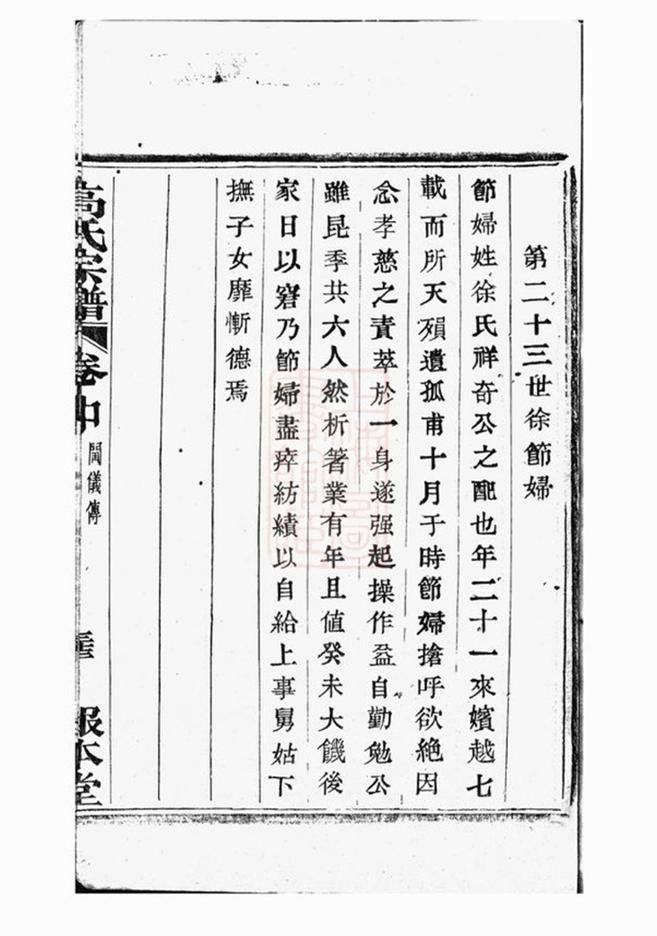 第二十三世徐節婦
節婦姓徐氏祥奇公之配也年二十一來嬪越七
載而所天殞遺孤甫十月于時節婦搶呼欲絕因
念孝慈之責萃於一身遂强起操作益自勤勉公
雖昆季共六人然析箸業有年且值癸未大饑後
家日以窘乃節婦盡瘁紡績以自給上事舅姑下
撫子女靡慚德焉
高氏宗譜 卷中 閫儀傳 報本堂